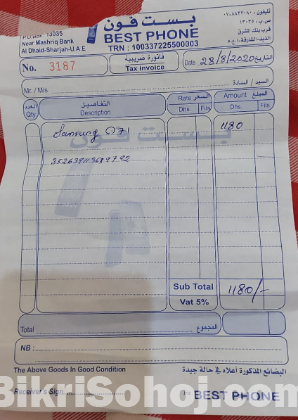 بست فون
BEST PHONE
TRN : 100337225500003
P.O.Box: 13035
Near Mashriq Bank
Al Dhaid-Sharjah-U.A.E
No. 3187
فاتورة ضريبية
Tax Invoice
Date 28/8/2020 التاريخ
Mr. / M/s السيد / السادة
العدد Qty.
التفاصيل Description
Rate السعر
Dhs. Fils
Amount المبلغ
Dhs. Fils
Samsung A71 1180
Sub Total 1180/-
Vat 5%
Total المجموع
NB :
The Above Goods In Good Condition البضائع المذكورة أعلاه في حالة جيدة
Receiver's Sign
BEST PHONE
BikriSohoj.com